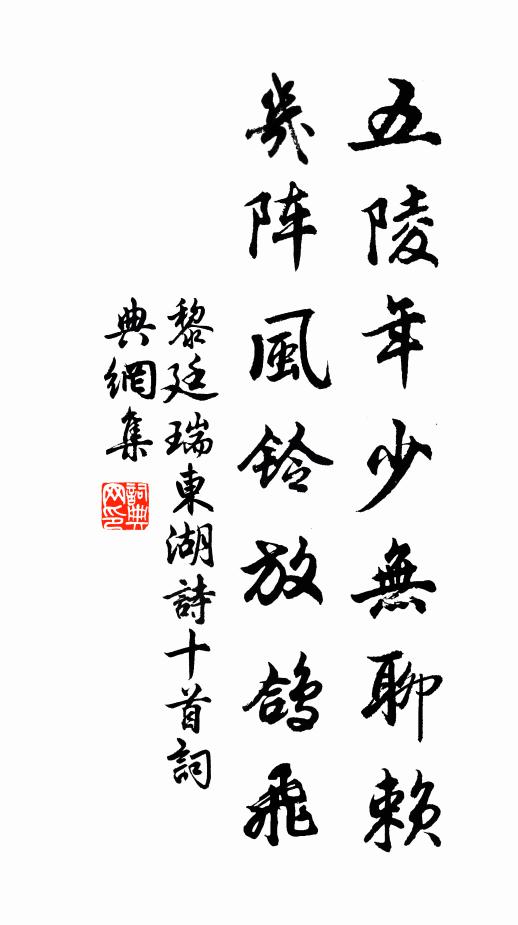 五陵年少無聊賴
幾阵風鈴放鴿飛
黎廷瑞東湖詩十首詞
典網集
詞典网印